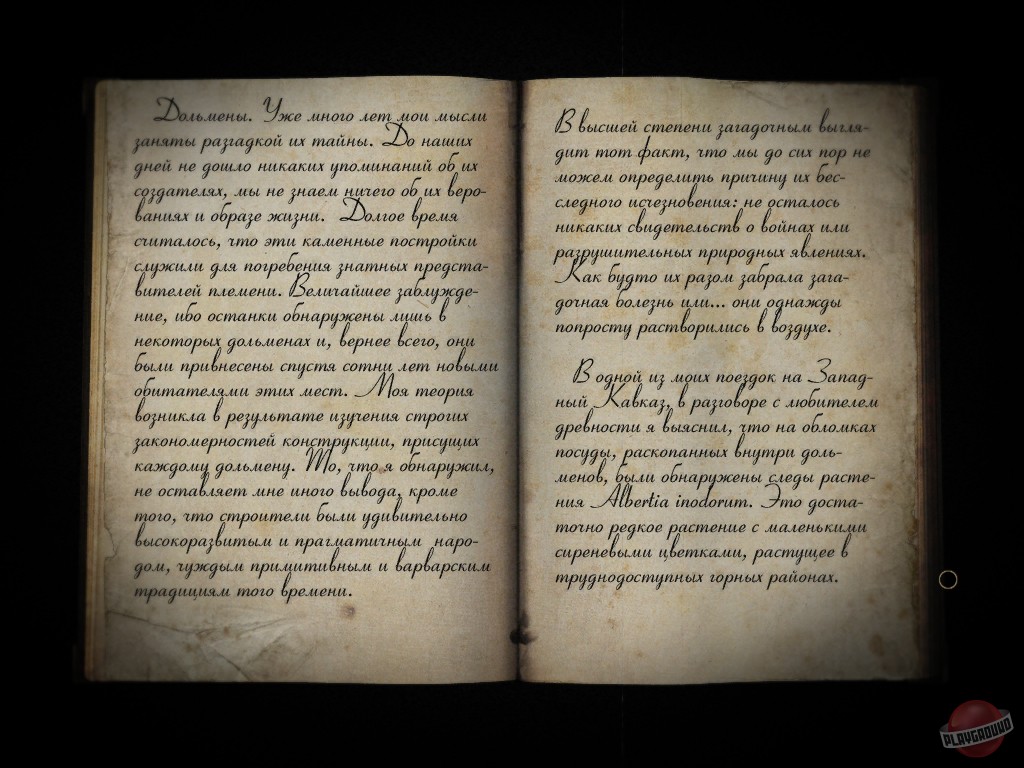 Дольмены. Уже много лет мои мысли
заняты разгадкой их тайны. До наших
дней не дошло никаких упоминаний об их
создателях, мы не знаем ничего об их веро-
ваниях и образе жизни. Долгое время
считалось, что эти каменные постройки
служили для погребения знатных предста-
вителей племени. Величайшее заблужде-
ние, ибо останки обнаружены лишь в
некоторых дольменах и, вернее всего, они
были привнесены спустя сотни лет новыми
обитателями этих мест. Моя теория
возникла в результате изучения строгих
закономерностей конструкции, присущих
каждому дольмену. То, что я обнаружил,
не оставляет мне иного вывода, кроме
того, что строители были удивительно
высокоразвитым и прагматичным наро-
дом, чуждым примитивным и варварским
традициям того времени.
В высшей степени загадочным выгля-
дит тот факт, что мы до сих пор не
можем определить причину их бес-
следного исчезновения: не осталось
никаких свидетельств о войнах или
разрушительных природных явлениях.
Как будто их разом забрала зага-
дочная болезнь или... они однажды
попросту растворились в воздухе.
В одной из моих поездок на Запад-
ный Кавказ, в разговоре с любителем
древности я выяснил, что на обломках
посуды, раскопанных внутри доль-
менов, были обнаружены следы расте-
ния Albertia inodorum. Это доста-
точно редкое растение с маленькими
сиреневыми цветками, растущее в
труднодоступных горных районах.
PLAYGROUND